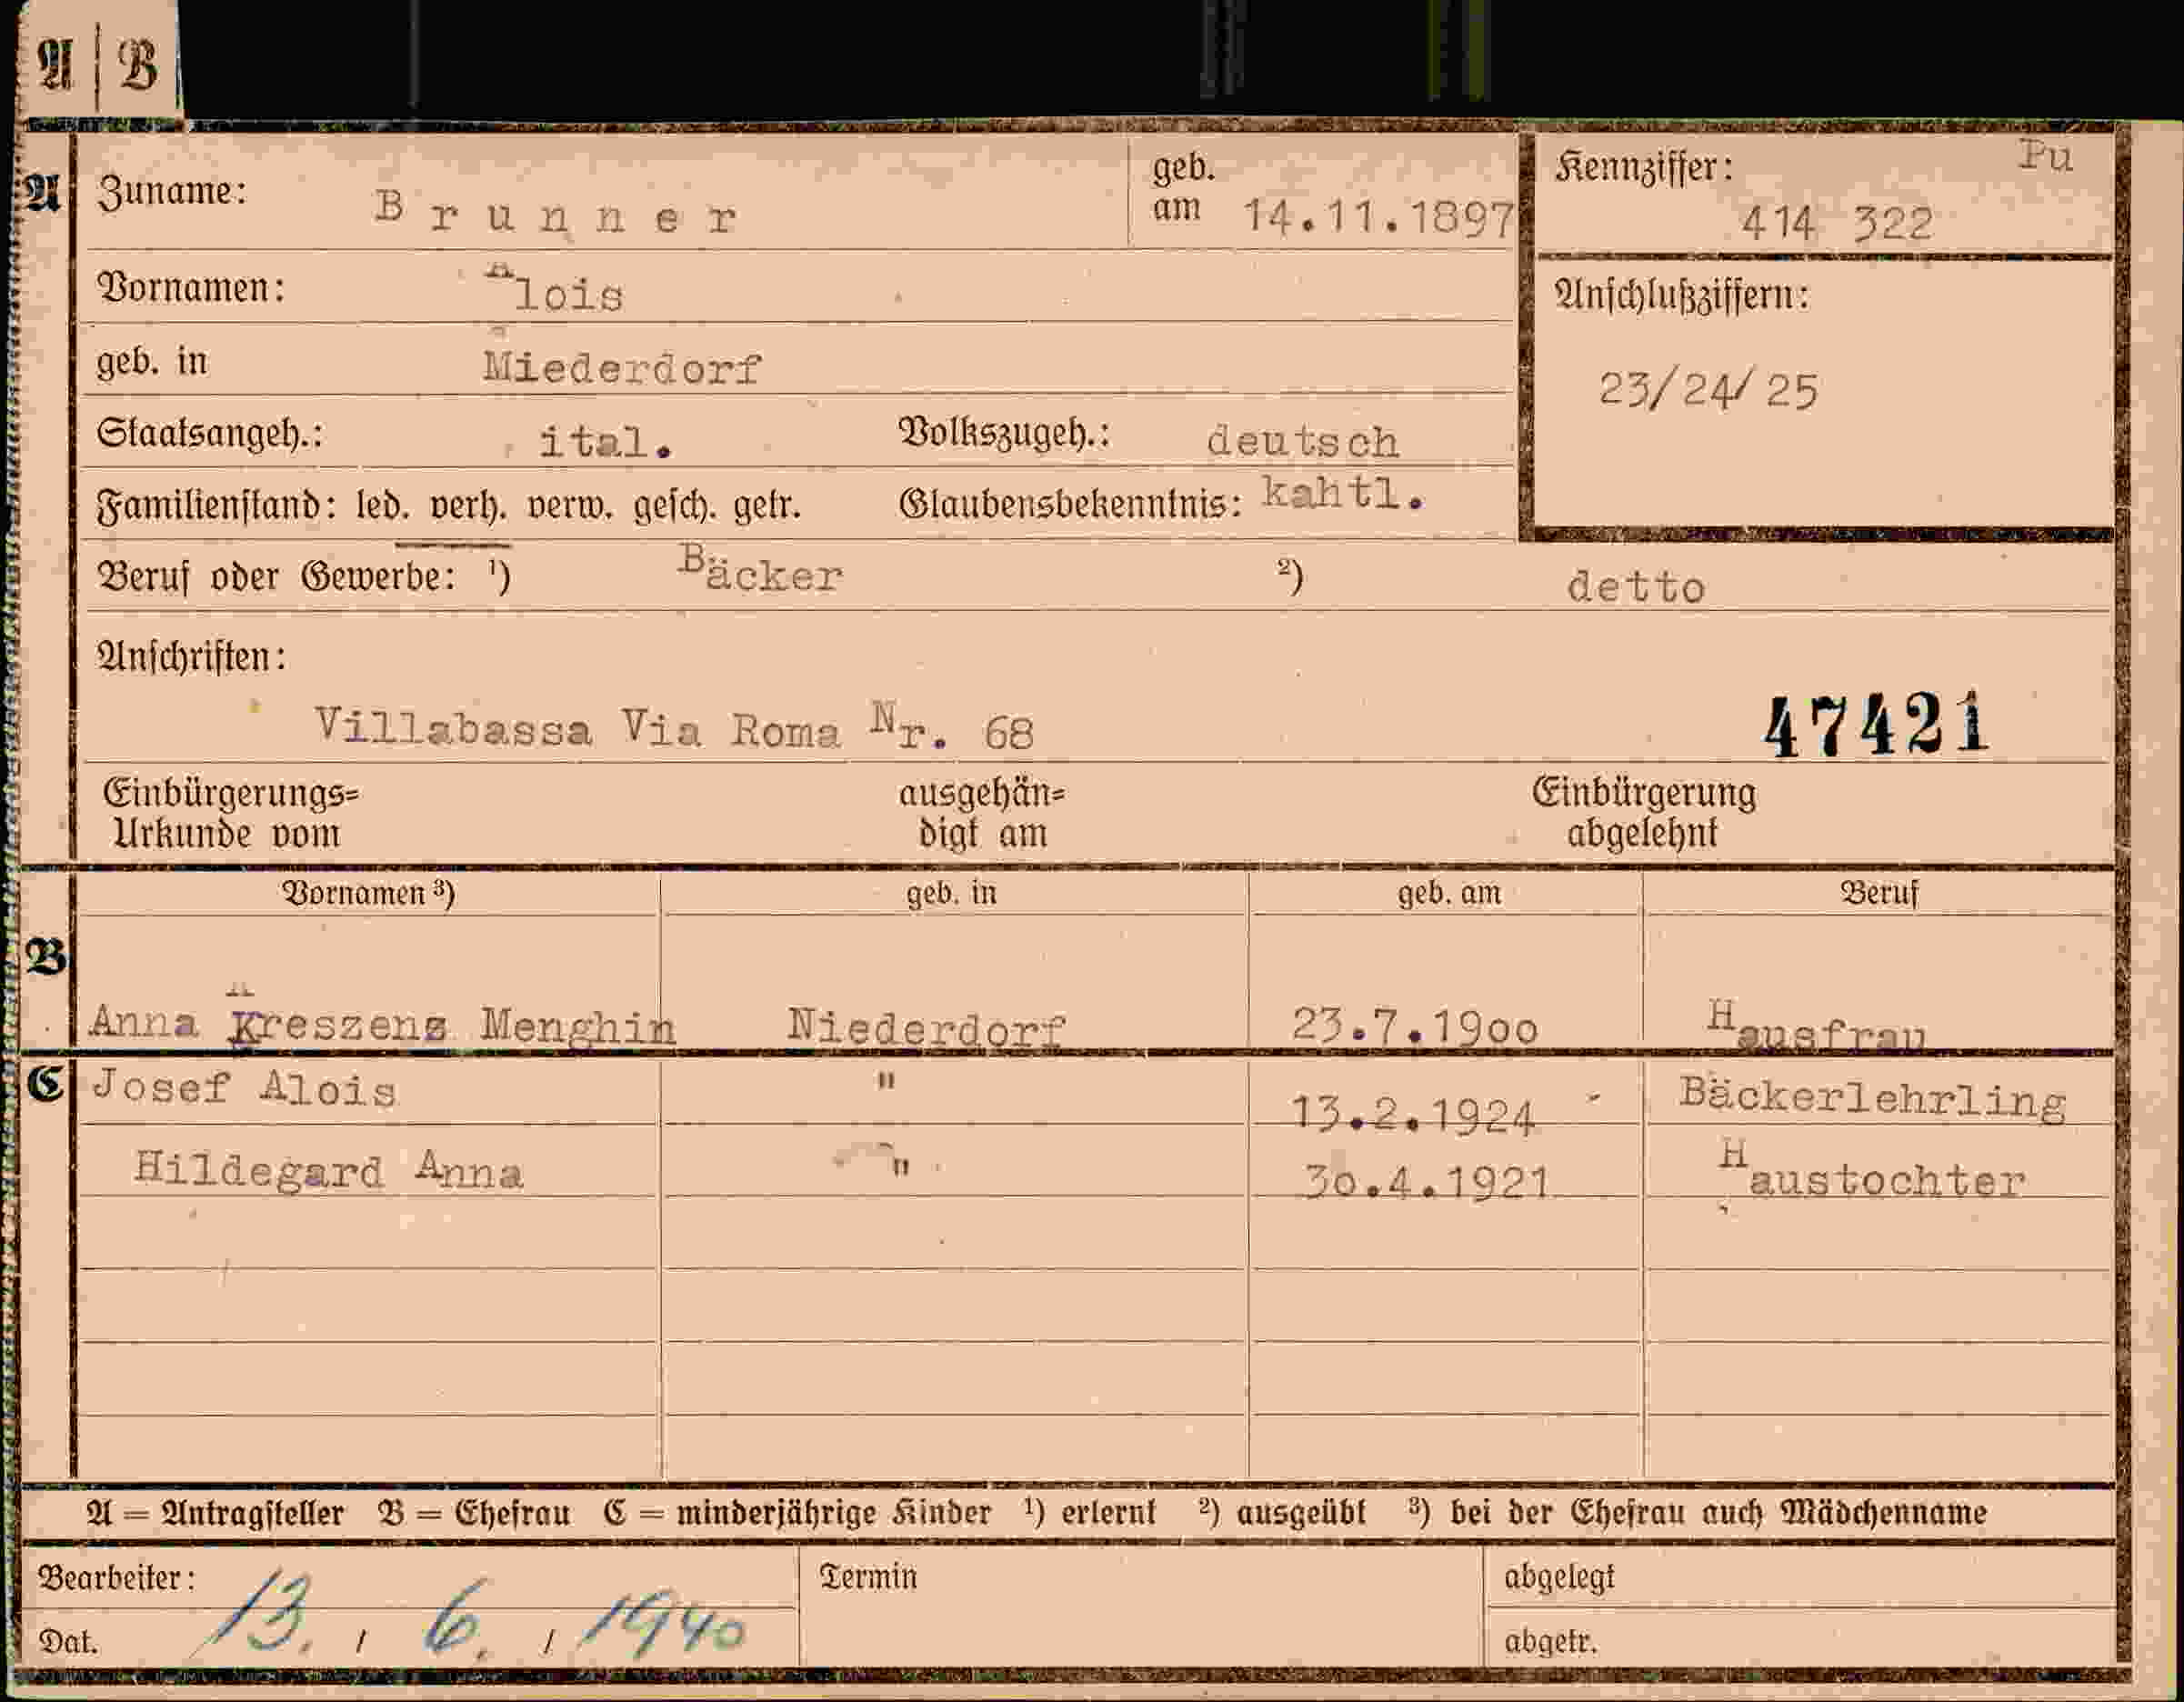 A | B
A Zuname: Brunner geb. am 14.11.1897 Kennziffer: Pu
414 322
Vornamen: Alois
Anschlußziffern:
geb. in Miederdorf
23/24/25
Staatsangeh.: ital. Volkszugeh.: deutsch
Familienstand: led. verh. verw. gesch. getr. Glaubensbekenntnis: kahtl.
Beruf oder Gewerbe: ¹) Bäcker ²) detto
Anschriften:
Villabassa Via Roma Nr. 68 47421
Einbürgerungs= ausgehän= Einbürgerung
Urkunde vom digt am abgelehnt
Vornamen ³) geb. in geb. am Beruf
B
Anna Kreszens Menghin Niederdorf 23.7.1900 Hausfrau
C Josef Alois " 13.2.1924 Bäckerlehrling
Hildegard Anna " 30.4.1921 Haustochter
A = Antragsteller B = Ehefrau C = minderjährige Kinder ¹) erlernt ²) ausgeübt ³) bei der Ehefrau auch Mädchenname
Bearbeiter: Termin abgelegt
Dat. 13. / 6. / 1940 abgetr.